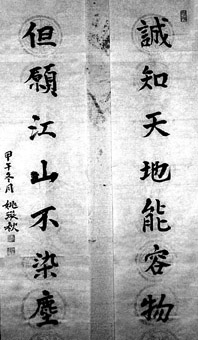 誠知天地能容物
但願江山不染塵
甲午冬月